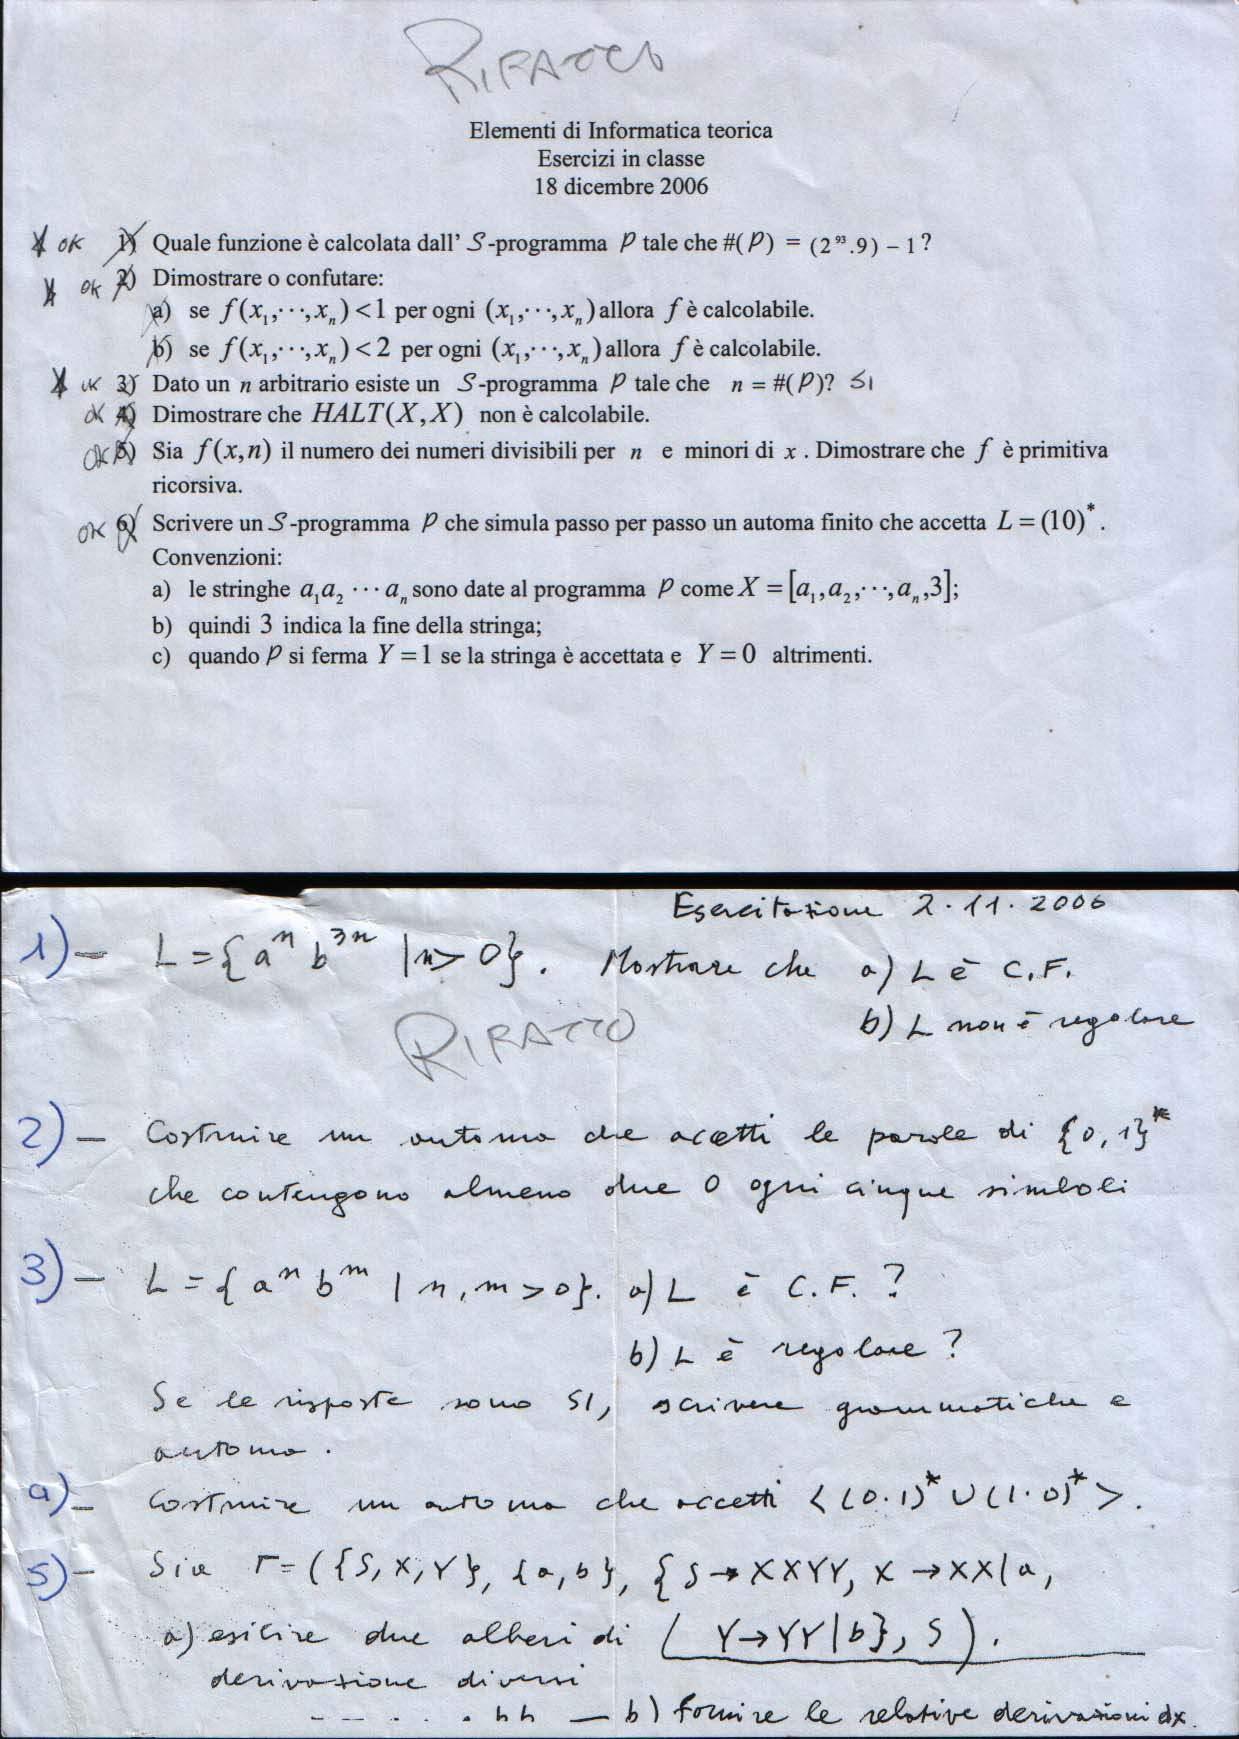 RIFATTO
Elementi di Informatica teorica
Esercizi in classe
18 dicembre 2006
ok 1) Quale funzione è calcolata dall' S-programma P tale che #(P) = (2^93.9) − 1?
ok 2) Dimostrare o confutare:
a) se f(x₁,···,xₙ) < 1 per ogni (x₁,···,xₙ) allora f è calcolabile.
b) se f(x₁,···,xₙ) < 2 per ogni (x₁,···,xₙ) allora f è calcolabile.
ok 3) Dato un n arbitrario esiste un S-programma P tale che n = #(P)? SI
ok 4) Dimostrare che HALT(X,X) non è calcolabile.
ok 5) Sia f(x,n) il numero dei numeri divisibili per n e minori di x. Dimostrare che f è primitiva
ricorsiva.
ok 6) Scrivere un S-programma P che simula passo per passo un automa finito che accetta L = (10)*.
Convenzioni:
a) le stringhe a₁a₂ ··· aₙ sono date al programma P come X = [a₁,a₂,···,aₙ,3];
b) quindi 3 indica la fine della stringa;
c) quando P si ferma Y = 1 se la stringa è accettata e Y = 0 altrimenti.
Esercitazione 2.11.2006
1)– L = {a^n b^3n | n > 0}. Mostrare che a) L è C.F.
b) L non è regolare
RIFATTO
2)– Costruire un automa che accetti le parole di {0,1}*
che contengono almeno due 0 ogni cinque simboli
3)– L = {a^n b^m | n, m > 0}. a) L è C.F.?
b) L è regolare?
Se le risposte sono SI, scrivere grammatiche e
automa.
4)– Costruire un automa che accetti <(0·1)* ∪ (1·0)*>.
5)– Sia Γ = ({S, X, Y}, {a, b}, {S → XXYY, X → XX|a,
a) esibire due alberi di ( Y → YY|b}, S).
derivazione diversi
b) fornire le relative derivazioni dx.